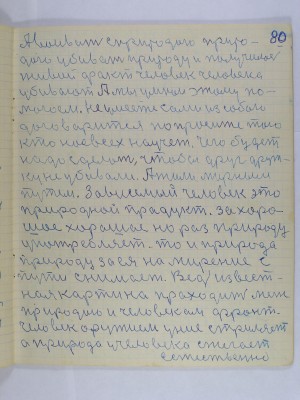 80
А воевит с природою приро-
дого убиват природу и получает
живой факт человек человека
убивает А мы учим этому по-
могаем. Не умеете сами из собой
договорится попросите того
кто нас всех научет. Чего будет
надо сделат, чтобы друг друж-
ку не убивали. А таким мирным
путем. Зависимый человек это
природной продукт. За хоро-
шое хорошое но раз природу
употребляет. то и природа
природу за ея на мирение с
пути снимает. Вед известная
картина проходит меж
природою и человекам фронт.
Человек оружием у ние стреляет
а природа у человека стегает
естественно